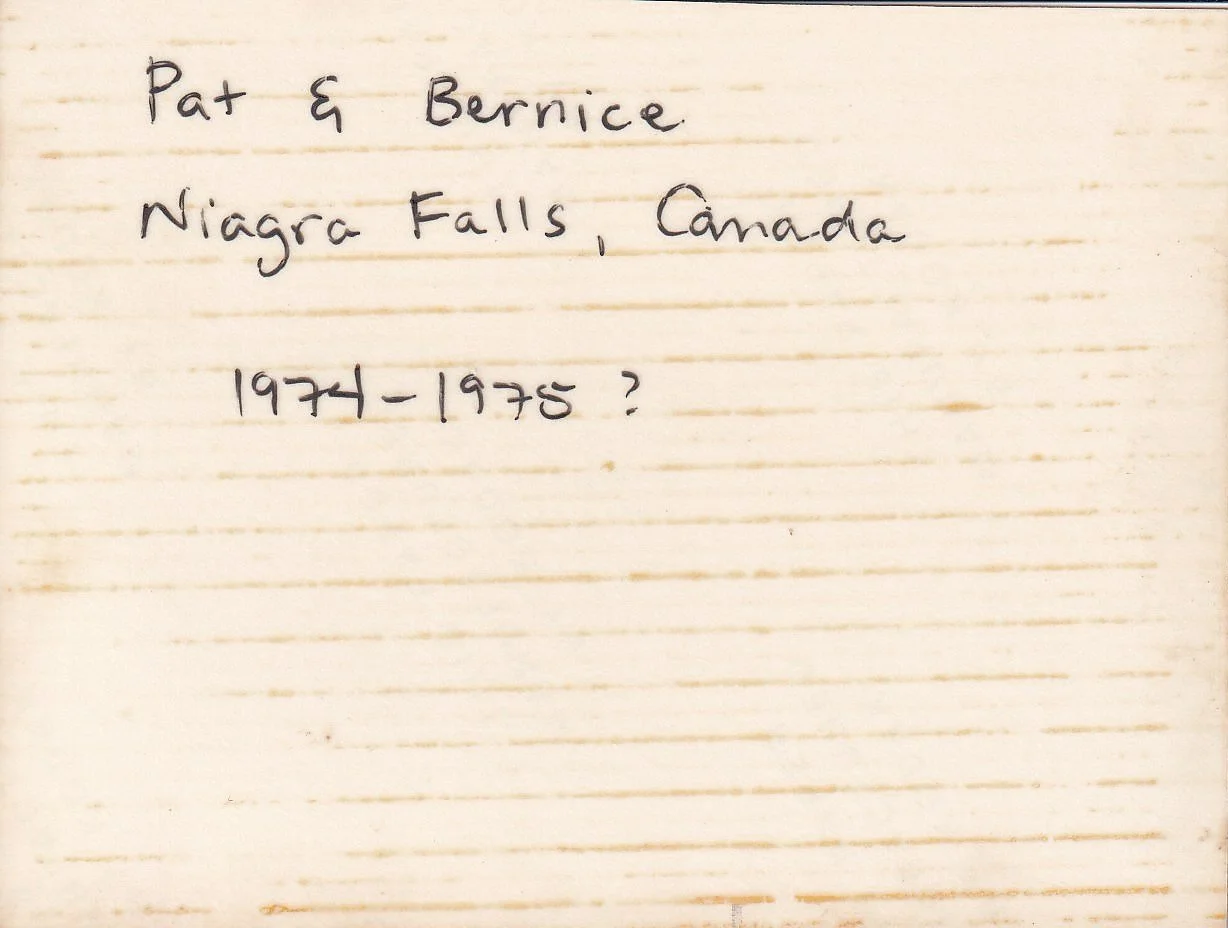 Pat & Bernice
Niagra Falls, Canada
1974-1975 ?